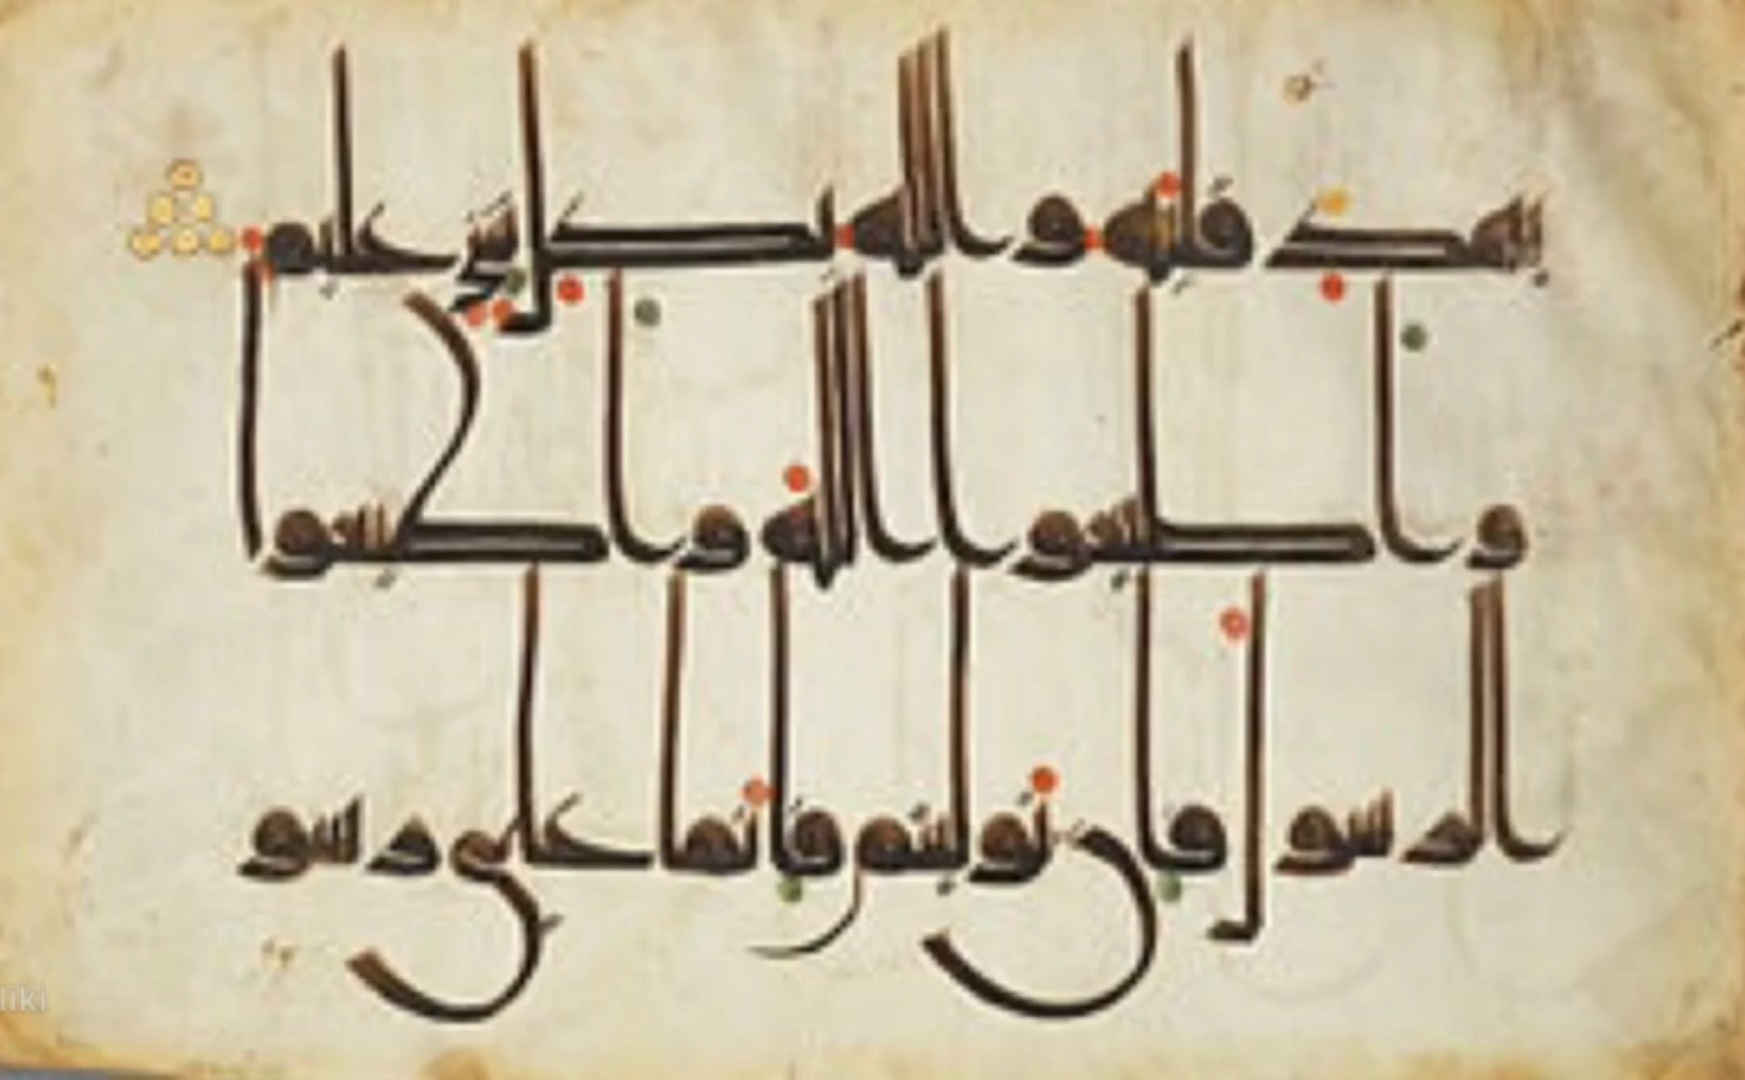 يهد قلبه والله بكل شي عليم
واطيعوا الله واطيعوا
الرسول فان توليتم فانما على رسو
liki